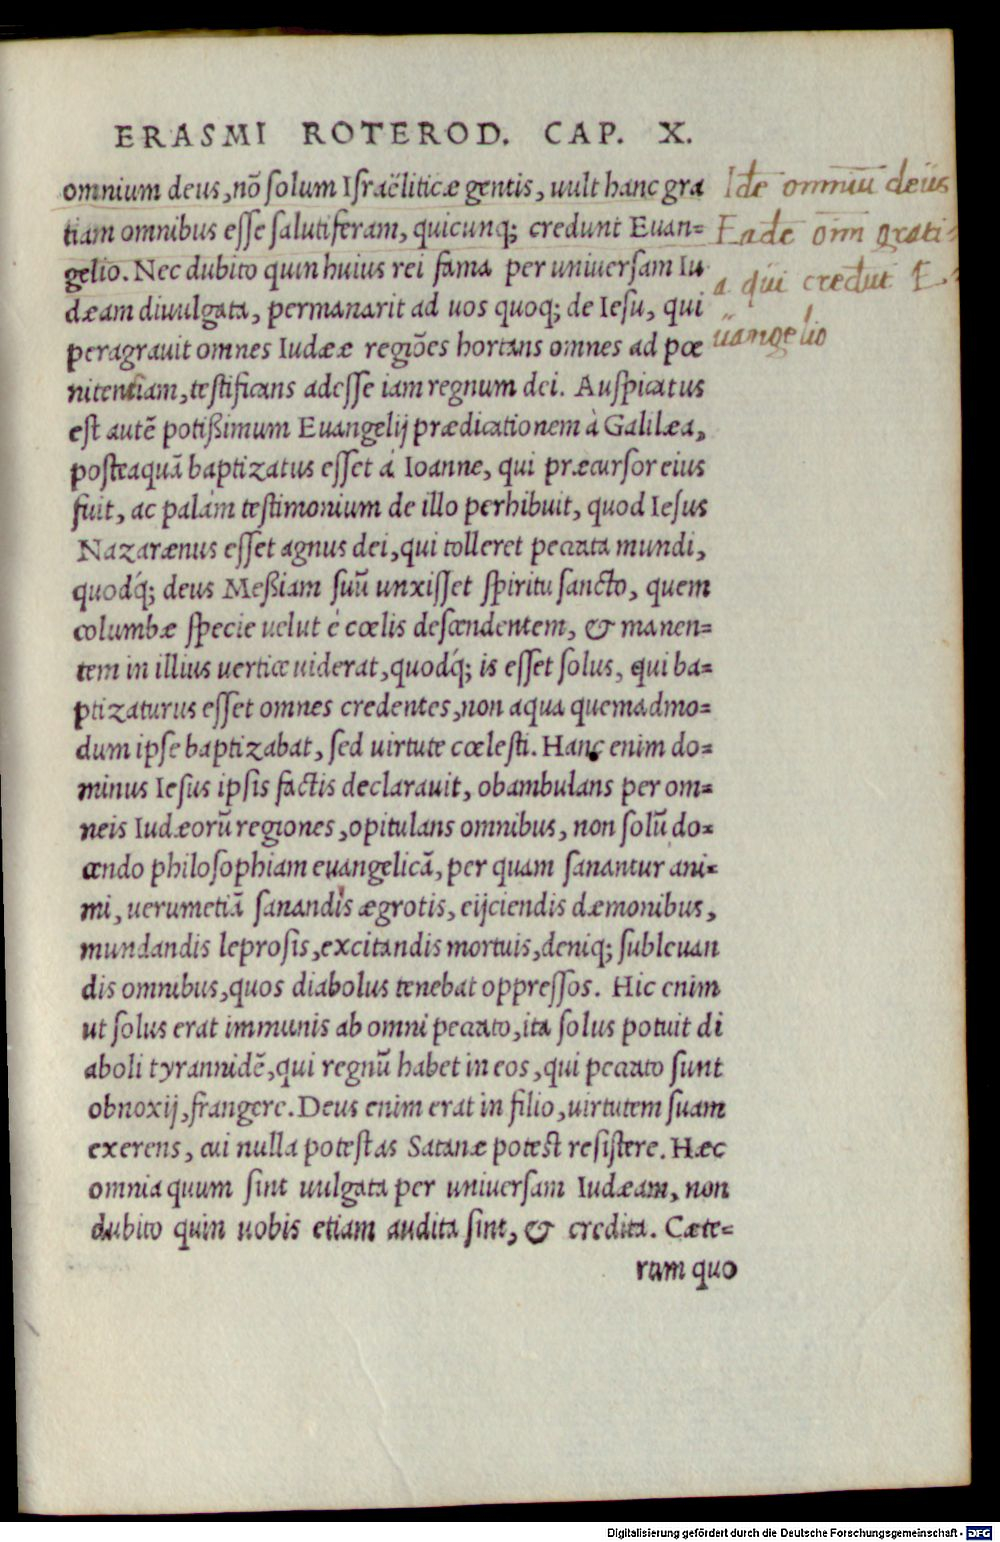 ERASMI ROTEROD. CAP. X.
omnium deus, nõ solum Israëliticæ gentis, uult hanc gra
tiam omnibus esse salutiferam, quicunq; credunt Euan=
gelio. Nec dubito quin huius rei fama per uniuersam Iu
dæam diuulgata, permanarit ad uos quoq; de Iesu, qui
peragrauit omnes Iudææ regiões hortans omnes ad pœ
nitentiam, testificans adesse iam regnum dei. Auspicatus
est autẽ potißimum Euangelij prædicationem à Galilæa,
posteaquã baptizatus esset á Ioanne, qui præcursor eius
fuit, ac palàm testimonium de illo perhibuit, quod Iesus
Nazarænus esset agnus dei, qui tolleret peccata mundi,
quodq́; deus Meßiam suũ unxisset spiritu sancto, quem
columbæ specie uelut è cœlis descendentem, & manen=
tem in illius uertice uiderat, quodq́; is esset solus, qui ba=
ptizaturus esset omnes credentes, non aqua quemadmo=
dum ipse baptizabat, sed uirtute cœlesti. Hanc enim do=
minus Iesus ipsis factis declarauit, obambulans per om=
neis Iudæorũ regiones, opitulans omnibus, non solũ do=
cendo philosophiam euangelicã, per quam sanantur ani=
mi, uerumetiã sanandis ægrotis, eijciendis dæmonibus,
mundandis leprosis, excitandis mortuis, deniq; subleuan
dis omnibus, quos diabolus tenebat oppressos. Hic enim
ut solus erat immunis ab omni peccato, ita solus potuit di
aboli tyrannidẽ, qui regnũ habet in eos, qui peccato sunt
obnoxij, frangere. Deus enim erat in filio, uirtutem suam
exerens, cui nulla potestas Satanæ potest resistere. Hæc
omnia quum sint uulgata per uniuersam Iudæam, non
dubito quin uobis etiam audita sint, & credita. Cæte=
rum quo
Idẽ omniũ deus
Eadẽ om̃ grati=
a qui credũt E=
uangelio
Digitalisierung gefördert durch die Deutsche Forschungsgemeinschaft - DFG